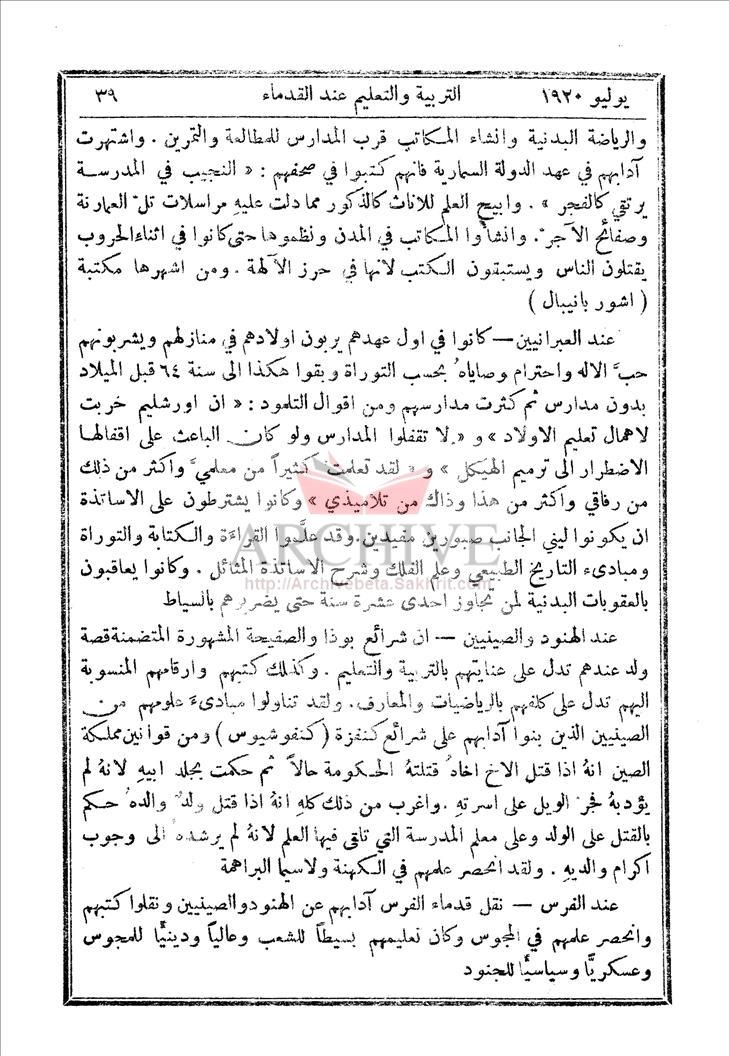 يوليو ١٩٢٠ التربية والتعليم عند القدماء ٣٩
والرياضة البدنية وانشاء المكاتب قرب المدارس للمطالعة والتمرين . واشتهرت
آدابهم في عهد الدولة السمارية فانهم كتبوا في صحفهم : « النجيب في المدرسة
يرتقي كالفجر » . وابيح العلم للاناث كالذكور مما دلت عليهِ مراسلات تلّ العمارنة
وصفائح الآجرّ . وانشأوا المكاتب في المدن ونظموها حتى كانوا في اثناء الحروب
يقتلون الناس ويستبقون الكتب لانها في حرز الآلهة . ومن اشهرها مكتبة
( اشور بانيبال )
عند العبرانيين — كانوا في اول عهدهم يربون اولادهم في منازلهم ويشربونهم
حبَّ الاله واحترام وصاياهُ بحسب التوراة وبقوا هكذا الى سنة ٦٤ قبل الميلاد
بدون مدارس ثم كثرت مدارسهم ومن اقوال التلمود : « ان اورشليم خربت
لاهمال تعليم الاولاد » و « لا تقفلوا المدارس ولو كان الباعث على اقفالها
الاضطرار الى ترميم الهيكل » و « لقد تعلمت كثيراً من معلميَّ واكثر من ذلك
من رفاقي واكثر من هذا وذاك من تلاميذي » وكانوا يشترطون على الاساتذة
ان يكونوا ليني الجانب صبورين مفيدين . وقد علّموا القراءة والكتابة والتوراة
ومبادىء التاريخ الطبيعي وعلم الفلك وشرح الاساتذة المثائل . وكانوا يعاقبون
بالعقوبات البدنية لمن يجاوز احدى عشرة سنة حتى يضربهم بالسياط
عند الهنود والصينيين — ان شرائع بوذا والصفيحة المشهورة المتضمنة قصة
ولد عندهم تدل على عنايتهم بالتربية والتعليم . وكذلك كتبهم وارقامهم المنسوبة
اليهم تدل على كلفهم بالرياضيات والمعارف . ولقد تناولوا مبادىءَ علومهم من
الصينيين الذين بنوا آدابهم على شرائع كنفزة ( كنفوشيوس ) ومن قوانين مملكة
الصين انهُ اذا قتل الاخ اخاهُ قتلتهُ الحكومة حالاً ثم حكمت بجلد ابيهِ لانهُ لم
يؤدبهُ فجرّ الويل على اسرتهِ . واغرب من ذلك كلهِ انهُ اذا قتل ولدٌ والدهُ حكم
بالقتل على الولد وعلى معلم المدرسة التي تلقى فيها العلم لانهُ لم يرشدهُ الى وجوب
اكرام والديهِ . ولقد انحصر علمهم في الكهنة ولاسيما البراهمة
عند الفرس — نقل قدماء الفرس آدابهم عن الهنود والصينيين ونقلوا كتبهم
وانحصر علمهم في المجوس وكان تعليمهم بسيطاً للشعب وعالياً ودينيًّا للمجوس
وعسكريًّا وسياسيًّا للجنود
ARCHIVE
http://Archivebeta.Sakhrit.com